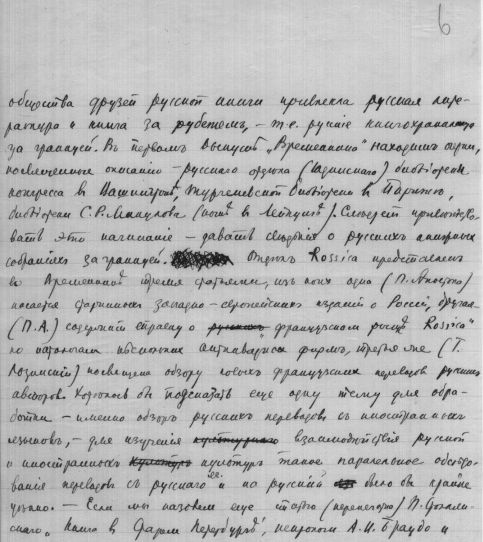 6
общества друзей русской книги привлекла русская лите-
ратура и книга за рубежом, – т.е. русские книгохранилища
за границей. Въ первомъ выпускѣ „Временника" находимъ очерки,
посвященные описанию – русского отдела (Юдинского) библиотеки
конгресса в Вашингтоне, Тургеневской библиотеки в Париже,
библиотеки С.Р. (ныне в Лейпциге). Следует приветство-
вать это начинание – давать сведения о русских книжных
собраниях за границей. Отделъ Rossica представлен
в Временнике тремя статьями, из коих одна (П. Апостола)
касается старинных западно-европейских изданий о России, другая
(П.А.) содержит справку о французском рынке „Rossica"
по каталогам нескольких антикварных фирм, третья же (Г.
Лозинский) посвящена обзору новых французских переводов русских
авторов. Хотелось бы подсказать еще одну тему для обра-
ботки – именно обзор русских переводов съ иностранных
языков, – для изучения взаимодействия русской
и иностранных культур такое паралельное обследо-
вание переводов съ русского и на русский было бы крайне
ценно. – Если мы назовем еще статью (перепечатку) П.
„Книга в Старом Петербурге", некрологи А.И. Браудо и